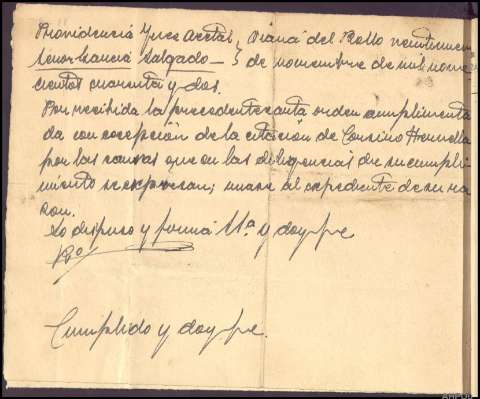 Providencia Juez acctal } Viana del Bollo veintinueve
Señor García Salgado — } de noviembre de mil nove
cientos cuarenta y dos.
Por recibida la precedente carta orden cumplimenta
da con excepción de la citación de
por las causas que en las diligencias de su cumpli
miento se expresan; unase al expediente de su ra
zon.
Lo dispuso y firma Sª y doy fe
Cumplido y doy fe.